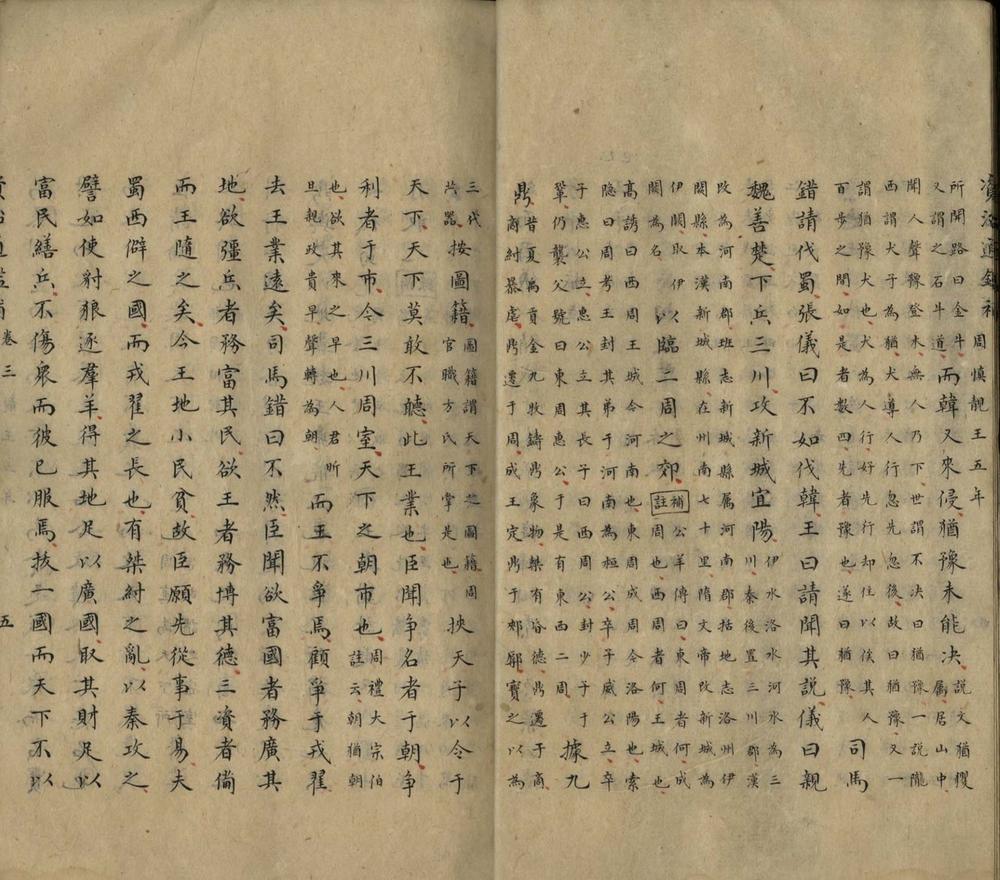 資治通鑑補 周慎靚王五年
所聞路曰金牛又謂之石牛道而韓又來侵猶豫未能決說文猶玃屬居山中
聞人聲豫登木無人乃下世謂不決曰猶豫一說隴西謂犬子為猶犬導人行忽先忽後故曰猶豫又一
謂猶豫犬也犬為人行好先行却住以俟其人百步之間如是者數四先者豫也遂曰猶豫司馬
錯請伐蜀張儀曰不如伐韓王曰請聞其説儀曰親
魏善楚下兵三川攻新城宜陽伊水洛水河水為三川秦後置三川郡漢
改為河南郡班志新城縣属河南郡括地志洛州伊闕縣本漢新城縣在州南七十里隋文帝改新城為
伊闕取伊闕為名以臨二周之郊補註公羊傳曰東周者何成周也西周者何王城也
高誘曰西周王城今河南也東周成周今洛陽也索隐曰周考王封其弟于河南為桓公卒子威公立卒
子惠公立惠公立其長子曰西周公封少子于鞏仍襲父號曰東周惠公于是有東西二周據九
鼎昔夏禹貢金九牧鑄鼎象物桀有昏德鼎遷于商商紂暴虐鼎遷于周成王定鼎于郟鄏寶之以為
三代共器按圖籍圖籍謂天下之圖籍周官職方氏所掌是也挾天子以令于
天下天下莫敢不聽此王業也臣聞爭名者于朝爭
利者于市今三川周室天下之朝市也周禮大宗伯註云朝猶朝
也欲其來之早也人君昕旦親政貴早聲轉為朝而王不爭焉顧爭于戎翟
去王業遠矣司馬錯曰不然臣聞欲富國者務廣其
地欲彊兵者務富其民欲王者務博其德三資者備
而王隨之矣今王地小民貧故臣願先從事于易夫
蜀西僻之國而戎翟之長也有桀紂之亂以秦攻之
譬如使豺狼逐羣羊得其地足以廣國取其財足以
富民繕兵不傷眾而彼已服焉拔一國而天下不以
資治通鑑補 卷三 五